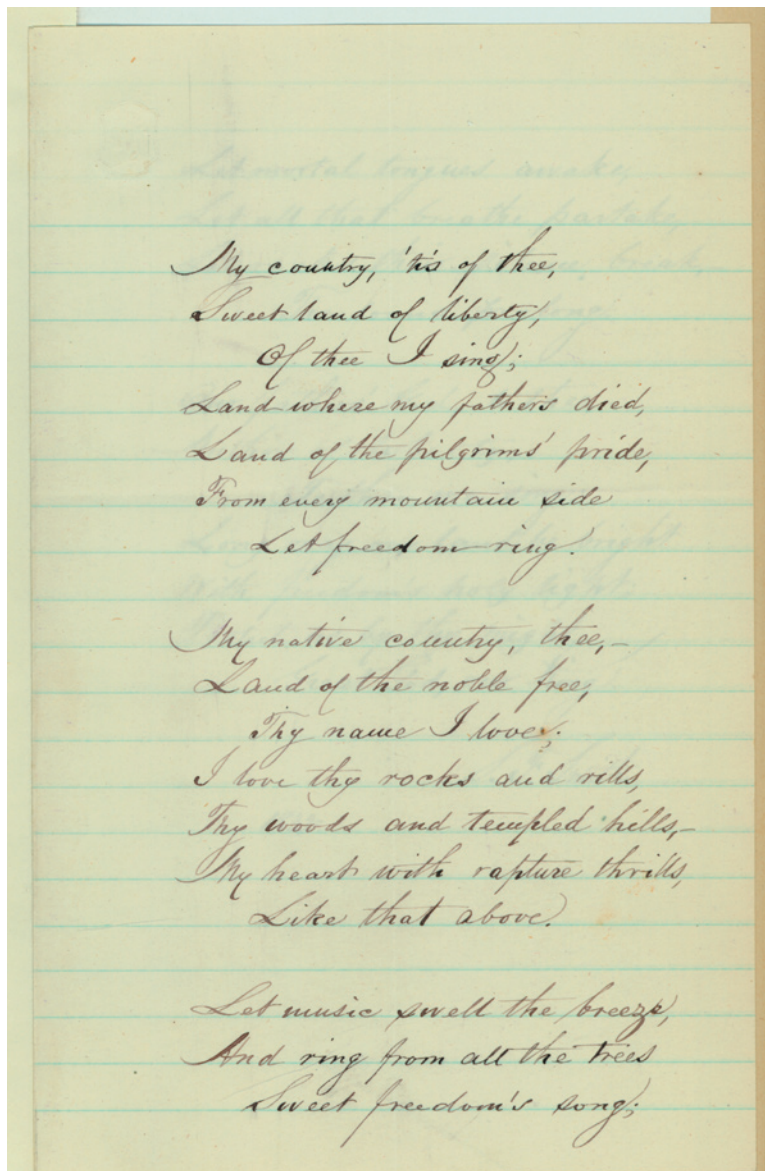 My country, 'tis of thee,
Sweet land of liberty,
Of thee I sing;
Land where my fathers died,
Land of the pilgrims' pride,
From every mountain side
Let freedom ring.
My native country, thee,—
Land of the noble free,
Thy name I love;
I love thy rocks and rills,
Thy woods and templed hills,—
My heart with rapture thrills,
Like that above.
Let music swell the breeze,
And ring from all the trees
Sweet freedom's song;